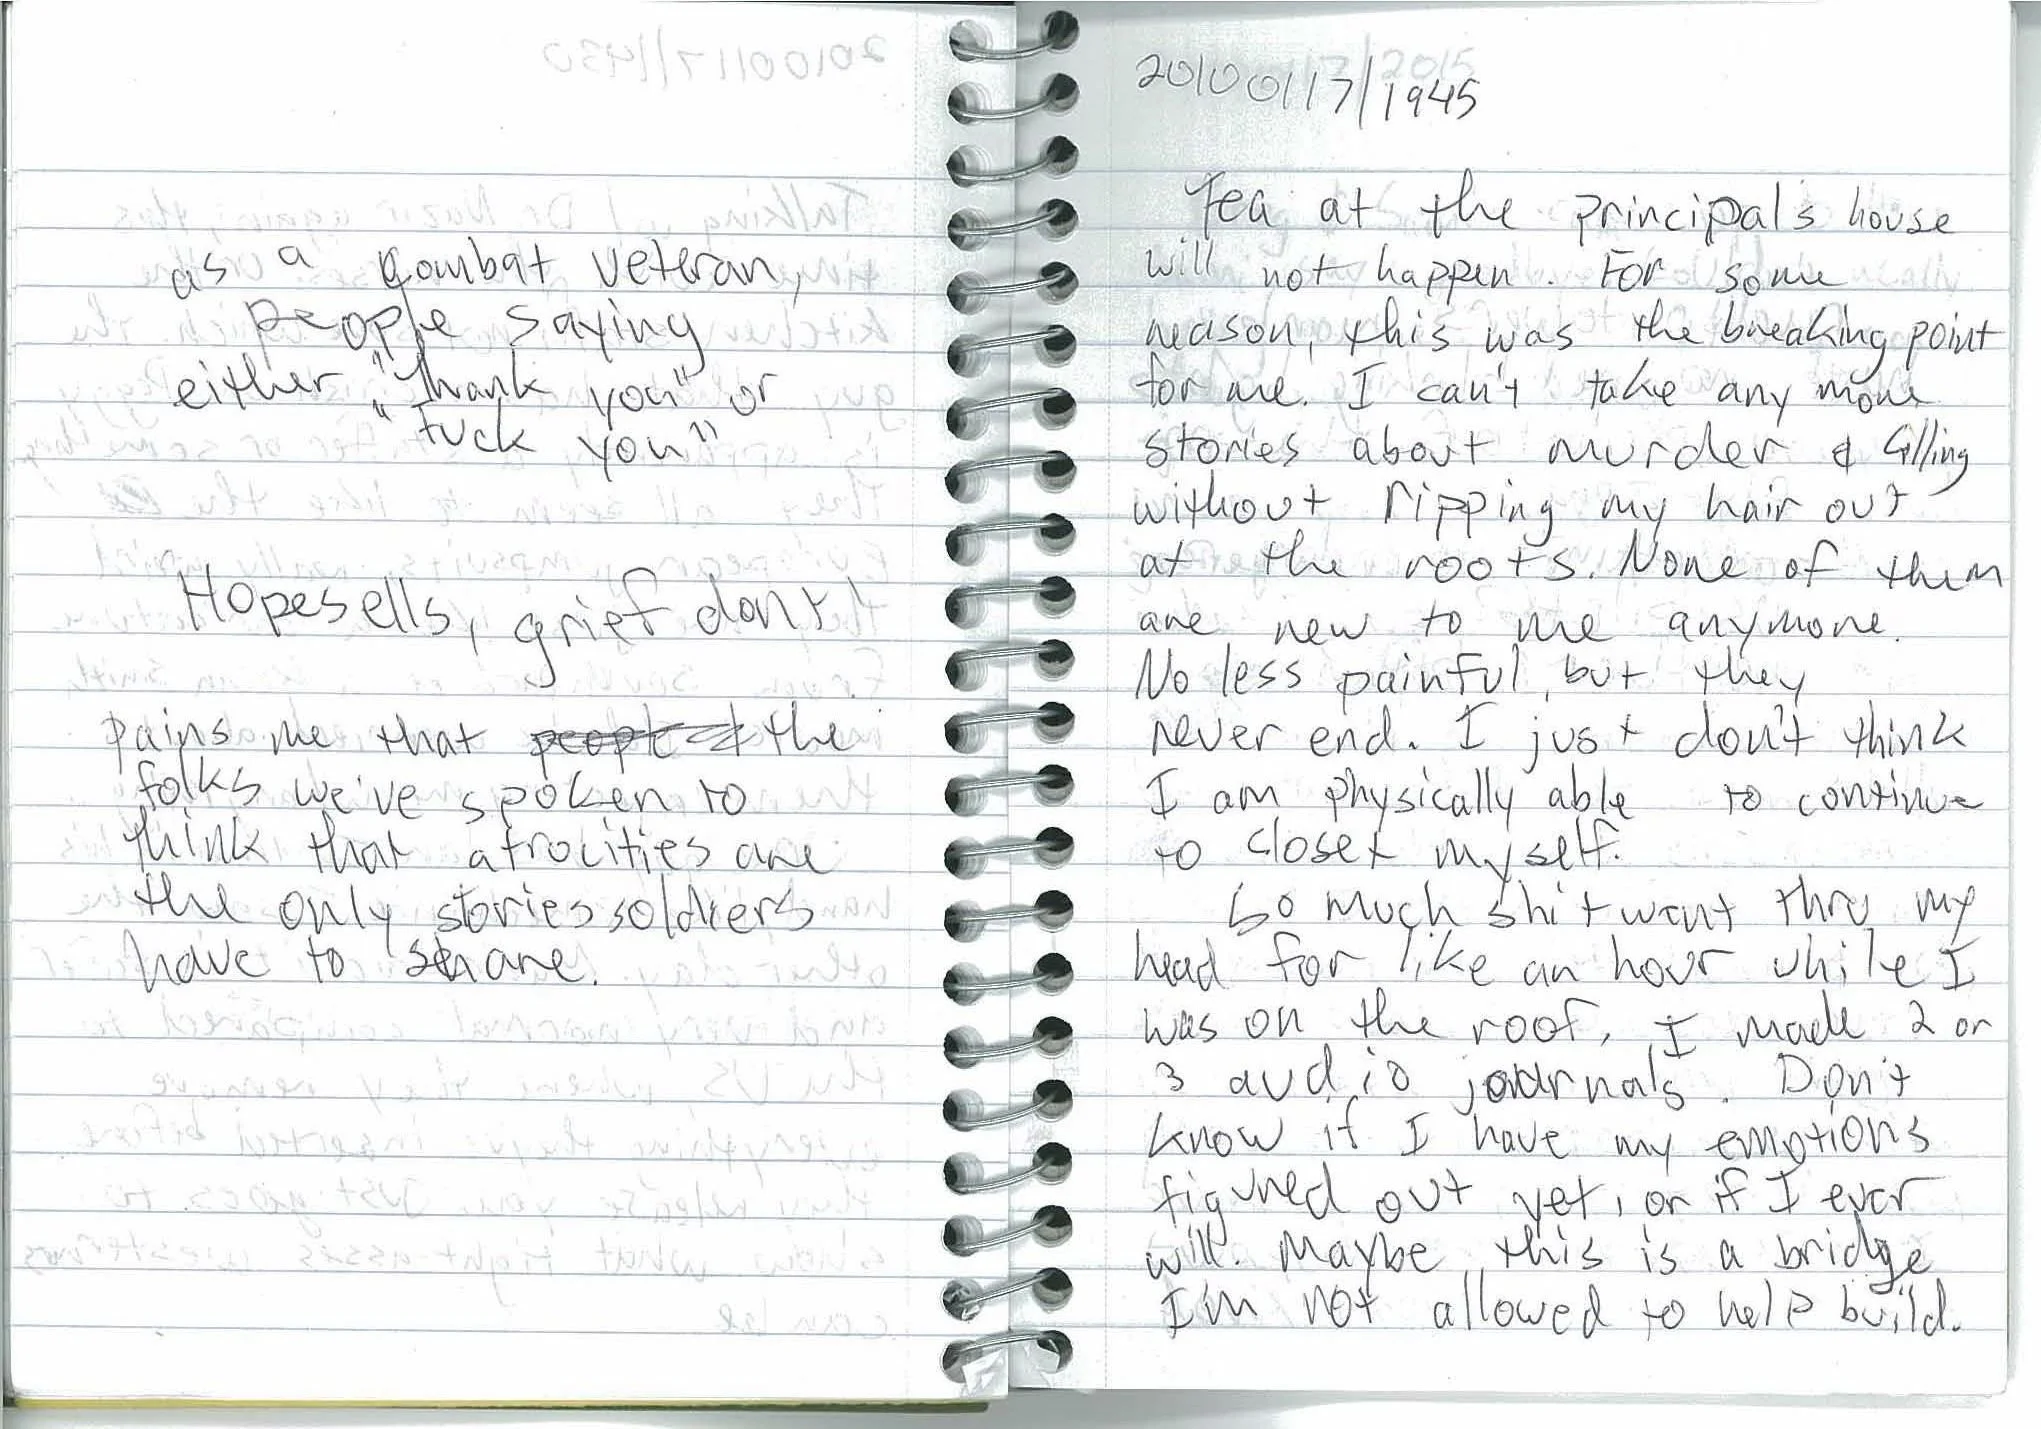 as a combat veteran,
people saying
either "Thank you" or
"Fuck you"
Hope sells, grief don't
pains me that the
folks we've spoken to
think that atrocities are
the only stories soldiers
have to share.
20100117/1945
Tea at the principal's house
will not happen. For some
reason, this was the breaking point
for me. I can't take any more
stories about murder & killing
without ripping my hair out
at the roots. None of them
are new to me anymore.
No less painful, but they
never end. I just don't think
I am physically able to continue
to closet myself.
So much shit went thru my
head for like an hour while I
was on the roof, I made 2 or
3 audio journals. Don't
know if I have my emotions
figured out yet, or if I ever
will. Maybe this is a bridge
I'm not allowed to help build.